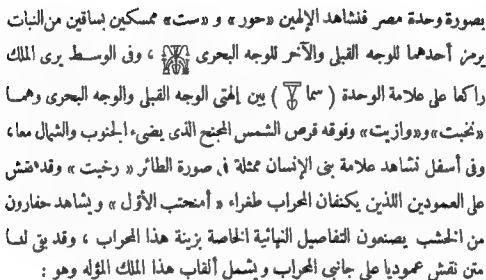 بصورة وحدة مصر فنشاهد الإلهين «حور» و «ست» ممسكين بساقين من النبات
يرمز أحدهما للوجه القبلى والآخر للوجه البحرى ، وفى الوسط يرى الملك
راكعا على علامة الوحدة ( سما ) بين إلهتى الوجه القبلى والوجه البحرى وهما
«نخبت» و«وازيت» وفوقه قرص الشمس المجنح الذى يضىء الجنوب والشمال معا،
وفى أسفل نشاهد علامة بنى الإنسان ممثلة فى صورة الطائر « رخيت » وقد نقش
على العمودين اللذين يكنفان المحراب طغراء « أمنحتب الأول » ويشاهد حفارون
من الخشب يصنعون التفاصيل النهائية الخاصة بزينة هذا المحراب ، وقد بقى لنا
متن نقش عموديا على جانبى المحراب ويشمل ألقاب هذا الملك المؤله وهو :